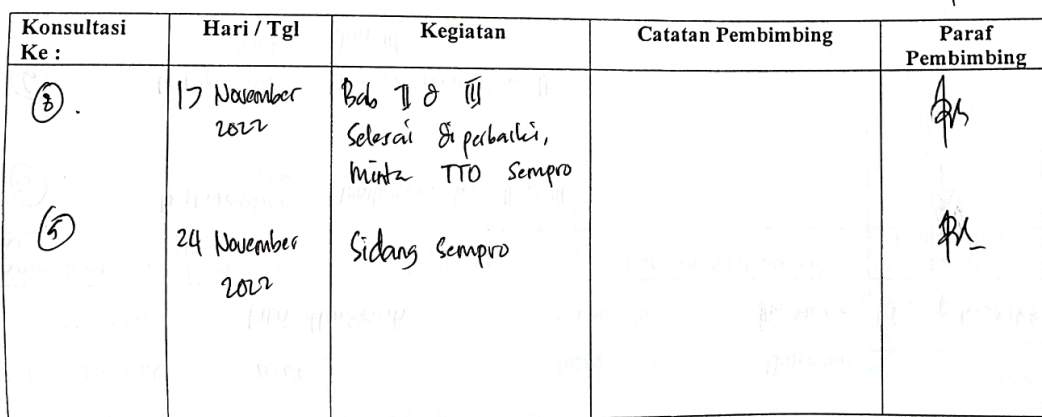 Konsultasi Ke :
Hari / Tgl
Kegiatan
Catatan Pembimbing
Paraf Pembimbing
17 November
2022
Bab II & III
Selesai diperbaiki,
Minta TTD Sempro
5
24 November
2022
Sidang Sempro